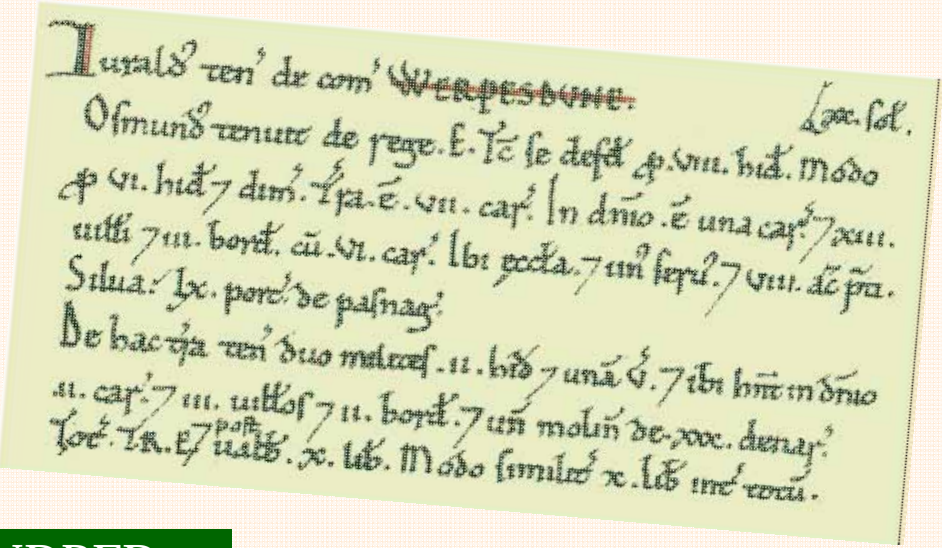 Turald᷎ ten᷎ de com᷎ WERPESDUNE.
Lxx. sol.
Osmund᷎ tenuit de rege. E. T̄c se defd̄ ꝑ. VIII. hid̄. Modo
ꝑ VI. hid̄ ⁊ dim᷎. Tr̄a. ē. VII. car᷎. In dn̄io. ē una car᷎. ⁊ XIII.
uilt̄i ⁊ III. bord̄. cū. VI. car᷎. Ibi ęccl̄a. ⁊ un᷎ seru᷎. ⁊ VIII. āc p̄ti.
Silua: lx. porc᷎. de pasnag᷎.
De hac tr̄a ten᷎ duo milites. II. hid̄ ⁊ unā v᷎. ⁊ ibi hn̄t in dn̄io
.II. car᷎. ⁊ III. uilt̄os ⁊ II. bord̄. ⁊ un̄ molin̄ de. xxx. denar᷎.
Tot᷎. T.R.E. ⁊ post ualb̄. x. lib̄. Modo similit᷎ x. lib̄ int᷎ totū.